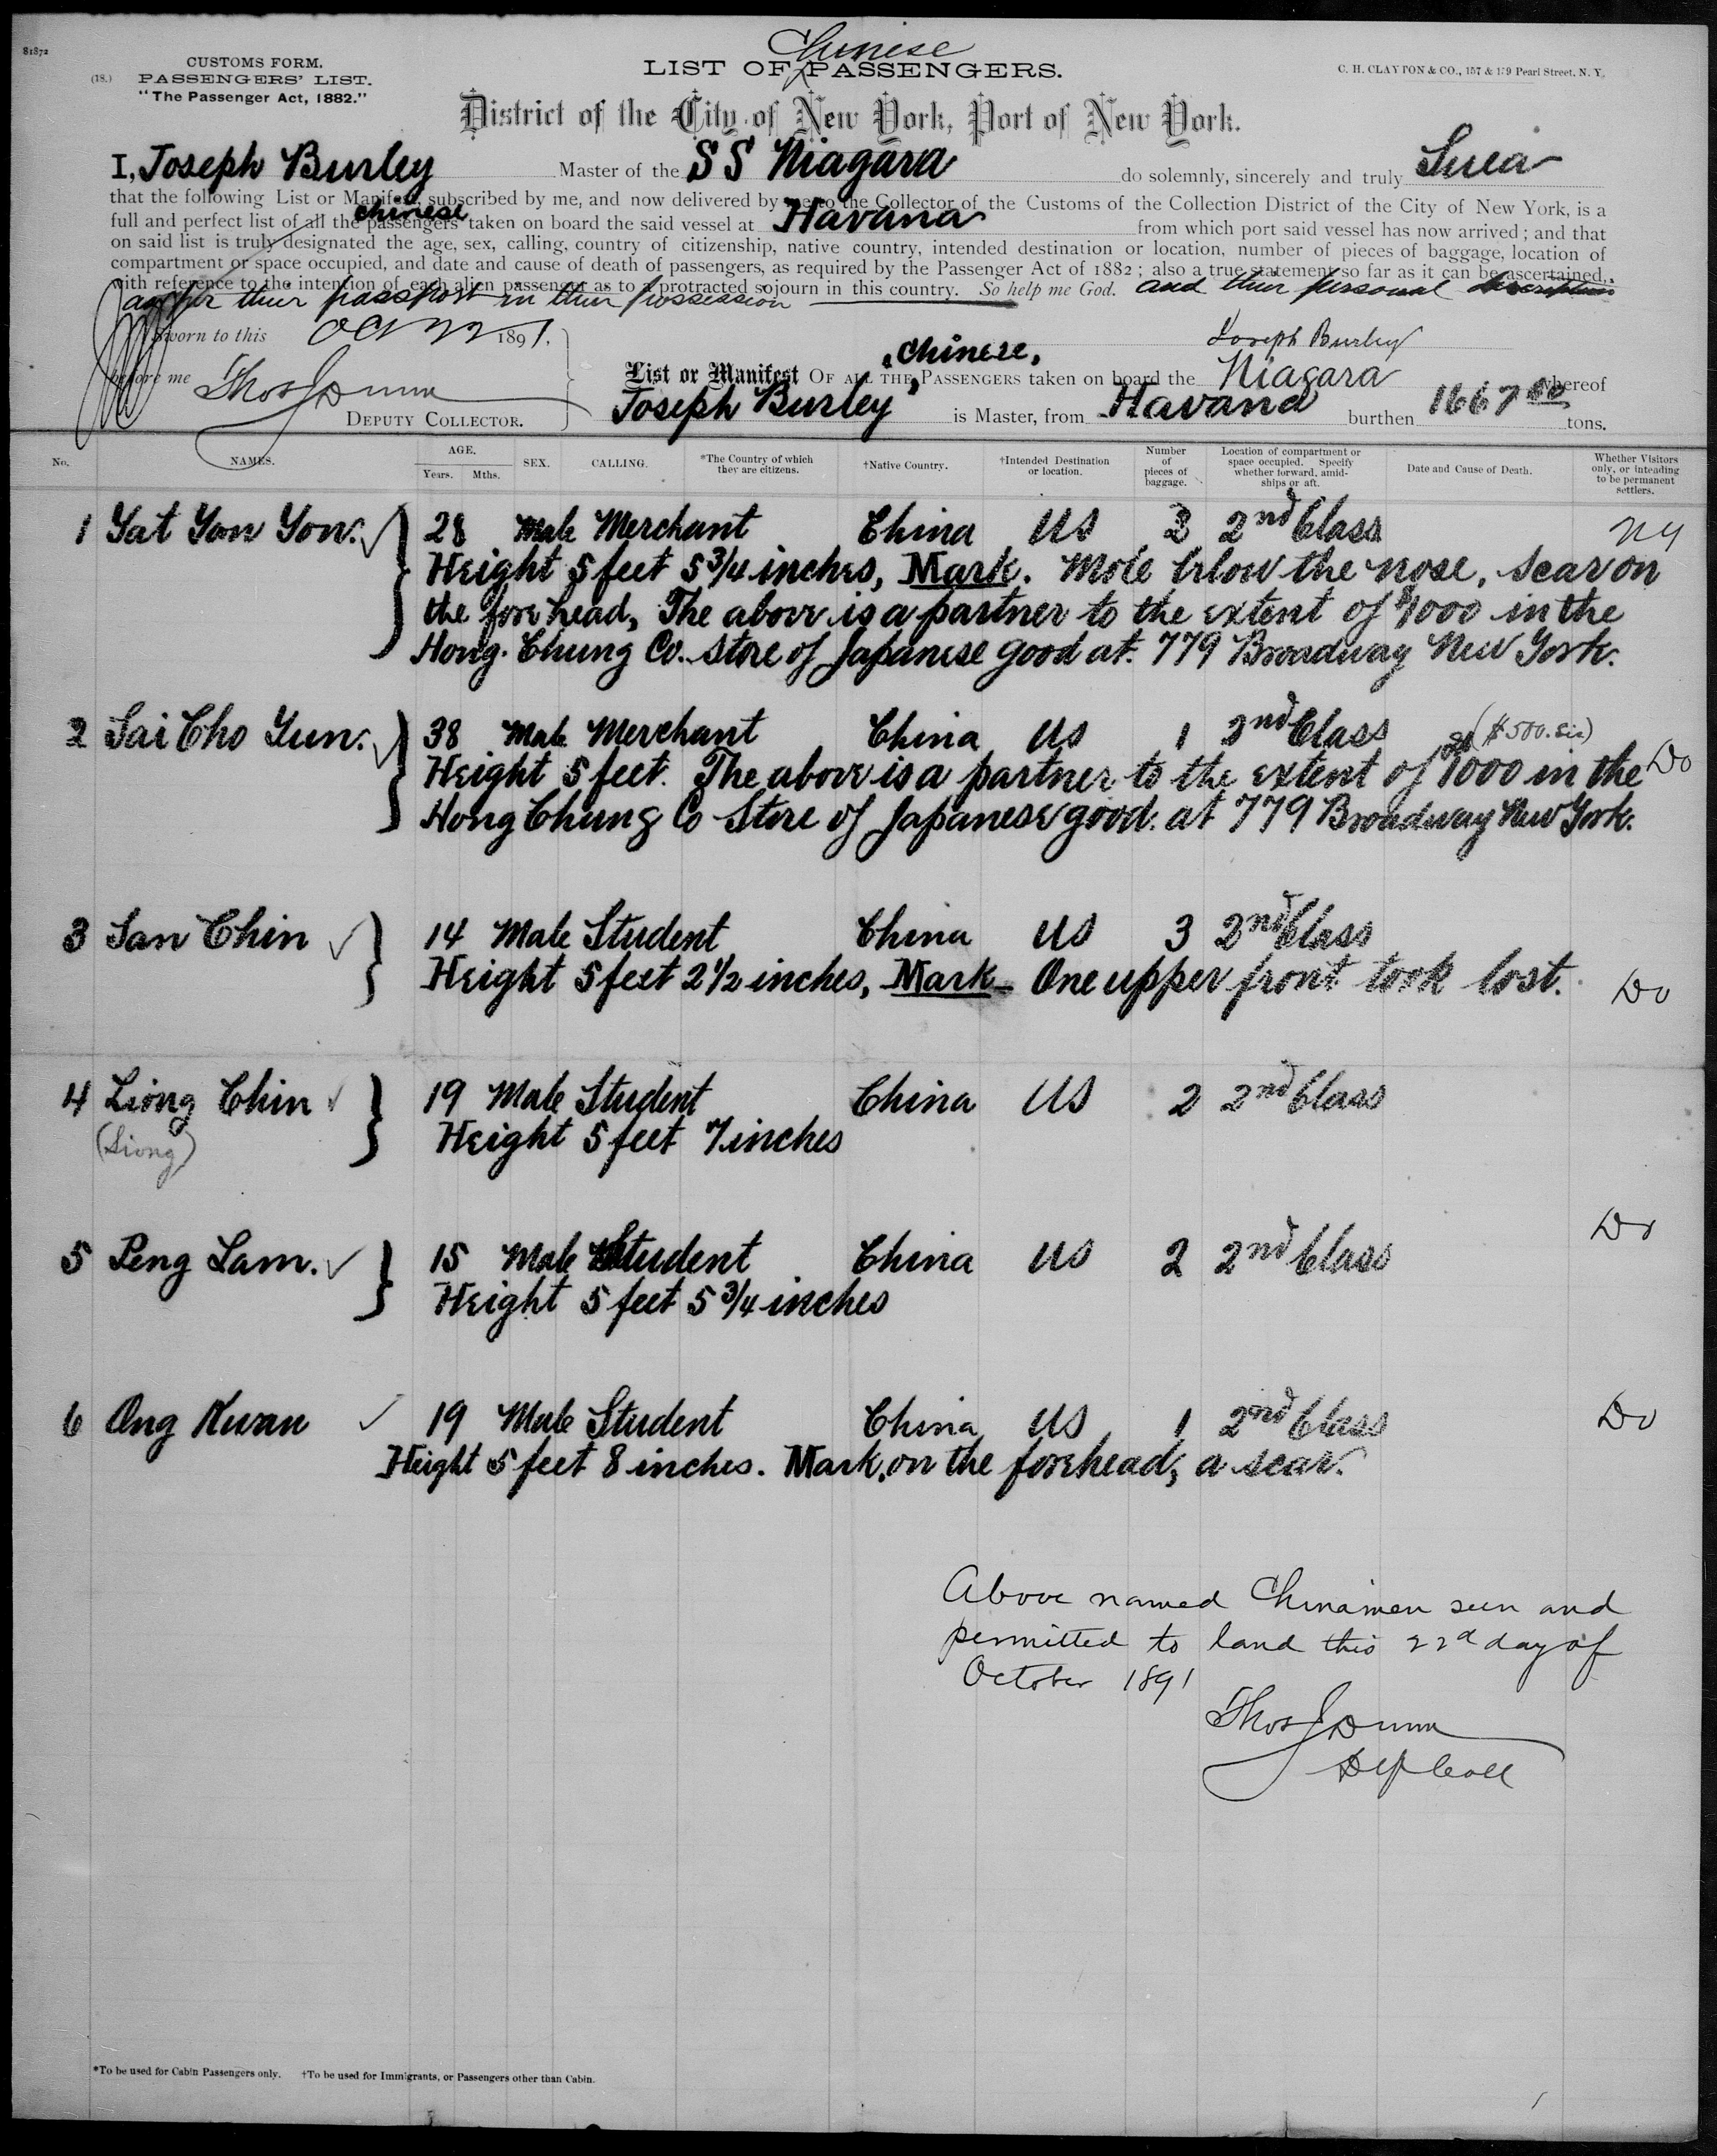 81872
CUSTOMS FORM.
(18.) PASSENGERS' LIST.
"The Passenger Act, 1882."
Chinese
LIST OF PASSENGERS.
C. H. CLAYTON & CO., 157 & 159 Pearl Street, N. Y.
District of the City of New York, Port of New York.
I, Joseph Burley Master of the SS Niagara do solemnly, sincerely and truly
that the following List or Manifest, subscribed by me, and now delivered by me to the Collector of the Customs of the Collection District of the City of New York, is a
full and perfect list of all the Chinese passengers taken on board the said vessel at Havana from which port said vessel has now arrived; and that
on said list is truly designated the age, sex, calling, country of citizenship, native country, intended destination or location, number of pieces of baggage, location of
compartment or space occupied, and date and cause of death of passengers, as required by the Passenger Act of 1882; also a true statement so far as it can be ascertained,
with reference to the intention of each alien passenger as to a protracted sojourn in this country. So help me God. and their personal description
as per their passport in their possession
Sworn to this Oct 22 1891.
Joseph Burley
before me Thos J Dunn
DEPUTY COLLECTOR.
List or Manifest OF ALL THE Chinese PASSENGERS taken on board the Niagara whereof
Joseph Burley is Master, from Havana burthen 1667 tons.
No. NAMES. AGE. Years. Mths. SEX. CALLING. *The Country of which they are citizens. †Native Country. †Intended Destination or location. Number of pieces of baggage. Location of compartment or space occupied. Specify whether forward, amid-ships or aft. Date and Cause of Death. Whether Visitors only, or intending to be permanent settlers.
1 Yat Yon Yon. 28 Male Merchant China US 3 2nd Class NY
Height 5 feet 5 3/4 inches, Mark. Mole below the nose, scar on
the fore head, The above is a partner to the extent of $1000 in the
Hong. Chung Co. Store of Japanese good at. 779 Broadway New York.
2 Sai Cho Yun. 38 Male Merchant China US 1 2nd Class
($500. Sic)
Height 5 feet. The above is a partner to the extent of $1000 in the Do
Hong Chung Co Store of Japanese good. at 779 Broadway New York.
3 San Chin 14 Male Student China US 3 2nd Class
Height 5 feet 2 1/2 inches, Mark - One upper front took lost. Do
4 Liong Chin 19 Male Student China US 2 2nd Class
(Siong) Height 5 feet 7 inches
Do
5 Peng Lam. 15 Male Student China US 2 2nd Class
Height 5 feet 5 3/4 inches
6 Ong Kwan 19 Male Student China US 1 2nd Class Do
Height 5 feet 8 inches. Mark, on the forehead, a scar.
Above named Chinamen seen and
permitted to land this 22d day of
October 1891
Thos J Dunn
Dep Coll
*To be used for Cabin Passengers only. †To be used for Immigrants, or Passengers other than Cabin.